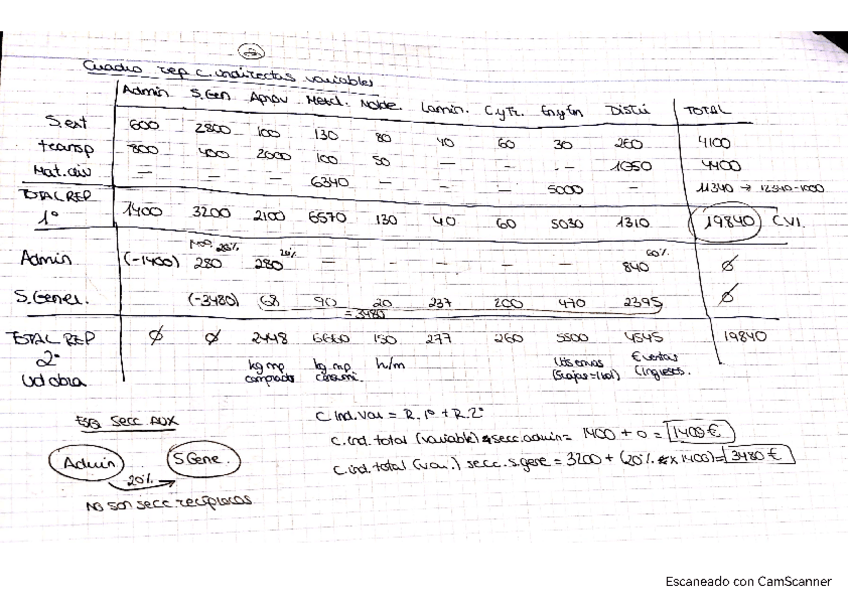 ②
Cuadro rep c. indirectas variables
Admin. S.Gen. Aprov. Mezcl. Molde. Lamin. CyTr. Enyen Distri TOTAL
S.ext 600 2800 100 130 80 40 60 30 260 4100
transp 800 400 2000 100 50 — — — 1050 4400
Mat.div — — — 6340 — — — 5000 11340 → 12340-1000
TOTAL REP 1º 1400 3200 2100 6570 130 40 60 5030 1310 19840 CVI.
20% 20% 60%
Admin (-1400) 280 280 — — — — — 840 ∅
S.Gener. (-3480) 68 90 20 237 200 470 2395 ∅
= 3480
TOTAL REP 2º ∅ ∅ 2448 6660 150 277 260 5500 4545 19840
Ud obra kg mp comprada kg mp. h/m Uds envas € ventas
(ingresos.
Secc. AUX
Admin S.Gene.
20%
No son secc. recíprocas
C.Ind.Var = R.1º + R.2º
C.ind.total (variable) secc.admin = 1400 + 0 = 1400€
C.ind.total (var.) secc.s.gene = 3200 + (20% x 1400) = 3480€
Escaneado con CamScanner